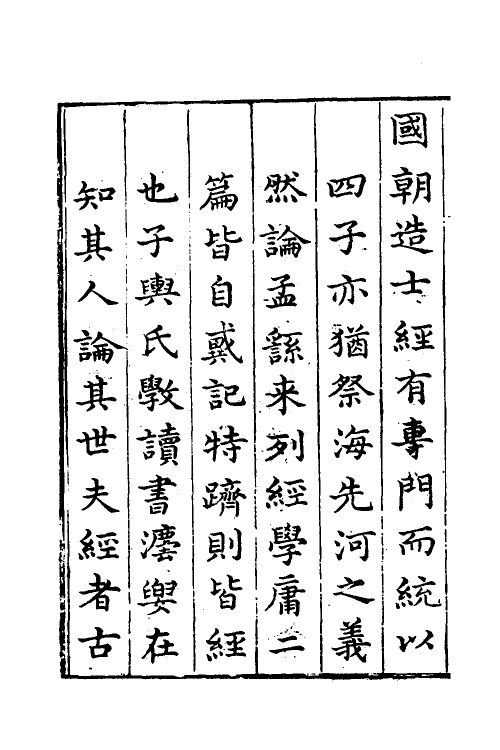 國朝造士經有專門而統以
四子亦猶祭海先河之義
然論孟繇来列經學庸二
篇皆自戴記特躋則皆經
也子輿氏敎讀書灋㝡在
知其人論其世夫經者古